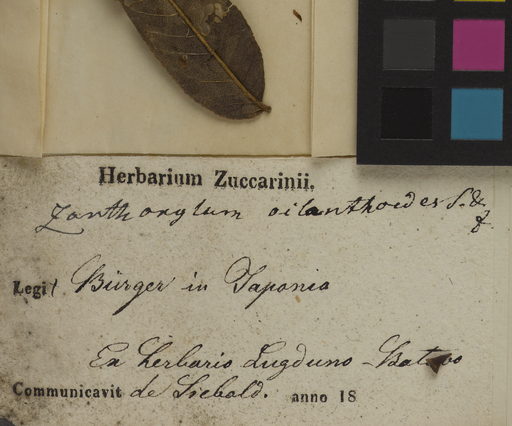 Herbarium Zuccarinii.
Zanthoxylum ailanthoides S. &
Z.
Legit Bürger in Japonia
Ex herbario Lugduno-Batavo
Communicavit de Siebold. anno 18